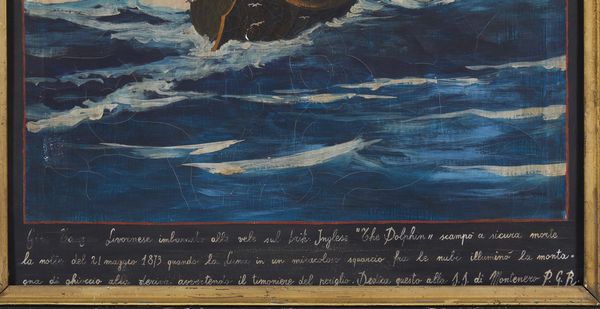 Livornese imbarcato alle vele sul brik Inglese "The Dolphin" scampò a sicura morte
la notte del 21 maggio 1873 quando la Luna in un miracoloso squarcio fra le nubi illuminò la monta=
gna di ghiaccio alla deriva avvertendo il timoniere del periglio. Dedica questo alla S.S. di Montenero P. G. R.